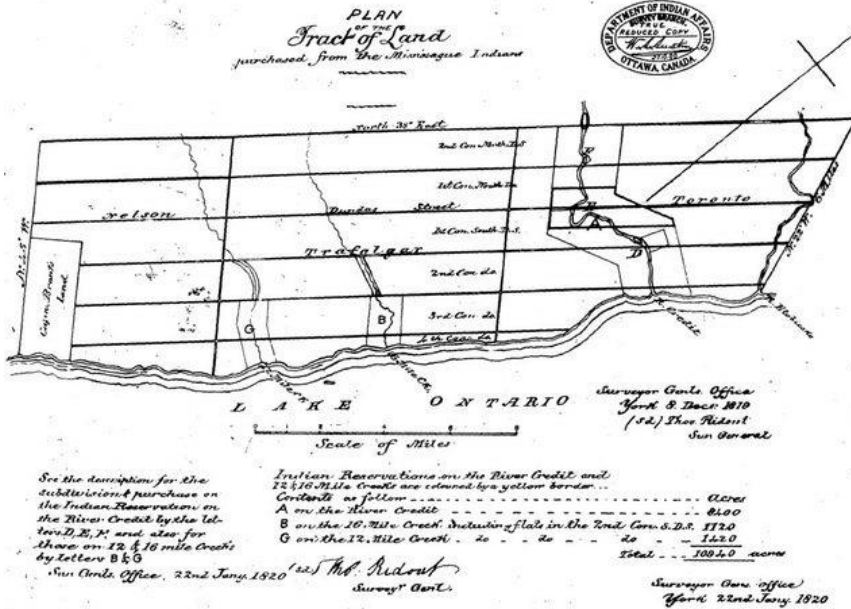 PLAN
OF THE
Tract of Land
purchased from the Missisague Indians
DEPARTMENT OF INDIAN AFFAIRS
SURVEY BRANCH.
TRUE
REDUCED COPY
OTTAWA, CANADA
North 38° East
2nd Con. North D.S.
1st Con. North Do.
Nelson
Dundas Street
Toronto
1st Con. South D.S.
Trafalgar
2nd Con. do
3rd Con. do
4th Con. do
Capn. Brant's
land
N. 45° W.
6 Miles
E
B
A
D
G
B
R. Credit
R. Etobicoke
LAKE ONTARIO
Scale of Miles
Surveyor Genls. Office
York 8. Decr. 1819
(sd) Thos. Ridout
Surv General
See the description for the
subdivision & purchase on
the Indian Reservation on
the River Credit by the let-
ters D, E, F, and also for
those on 12 & 16 mile Creeks
by letters B & G
Indian Reservations on the River Credit and
12 & 16 Mile Creeks are coloured by a yellow border...
Contents as follow Acres
A on the River Credit 8400
B on the 16 Mile Creek including flats in the 2nd Con. S.D.S. 1120
G on the 12 Mile Creek do do do 1420
Total 10940 acres
Surv Genls. Office, 22nd Jany. 1820 (sd) Tho. Ridout
Surveyr Genl.
Surveyor Gens. office
York 22nd Jany. 1820